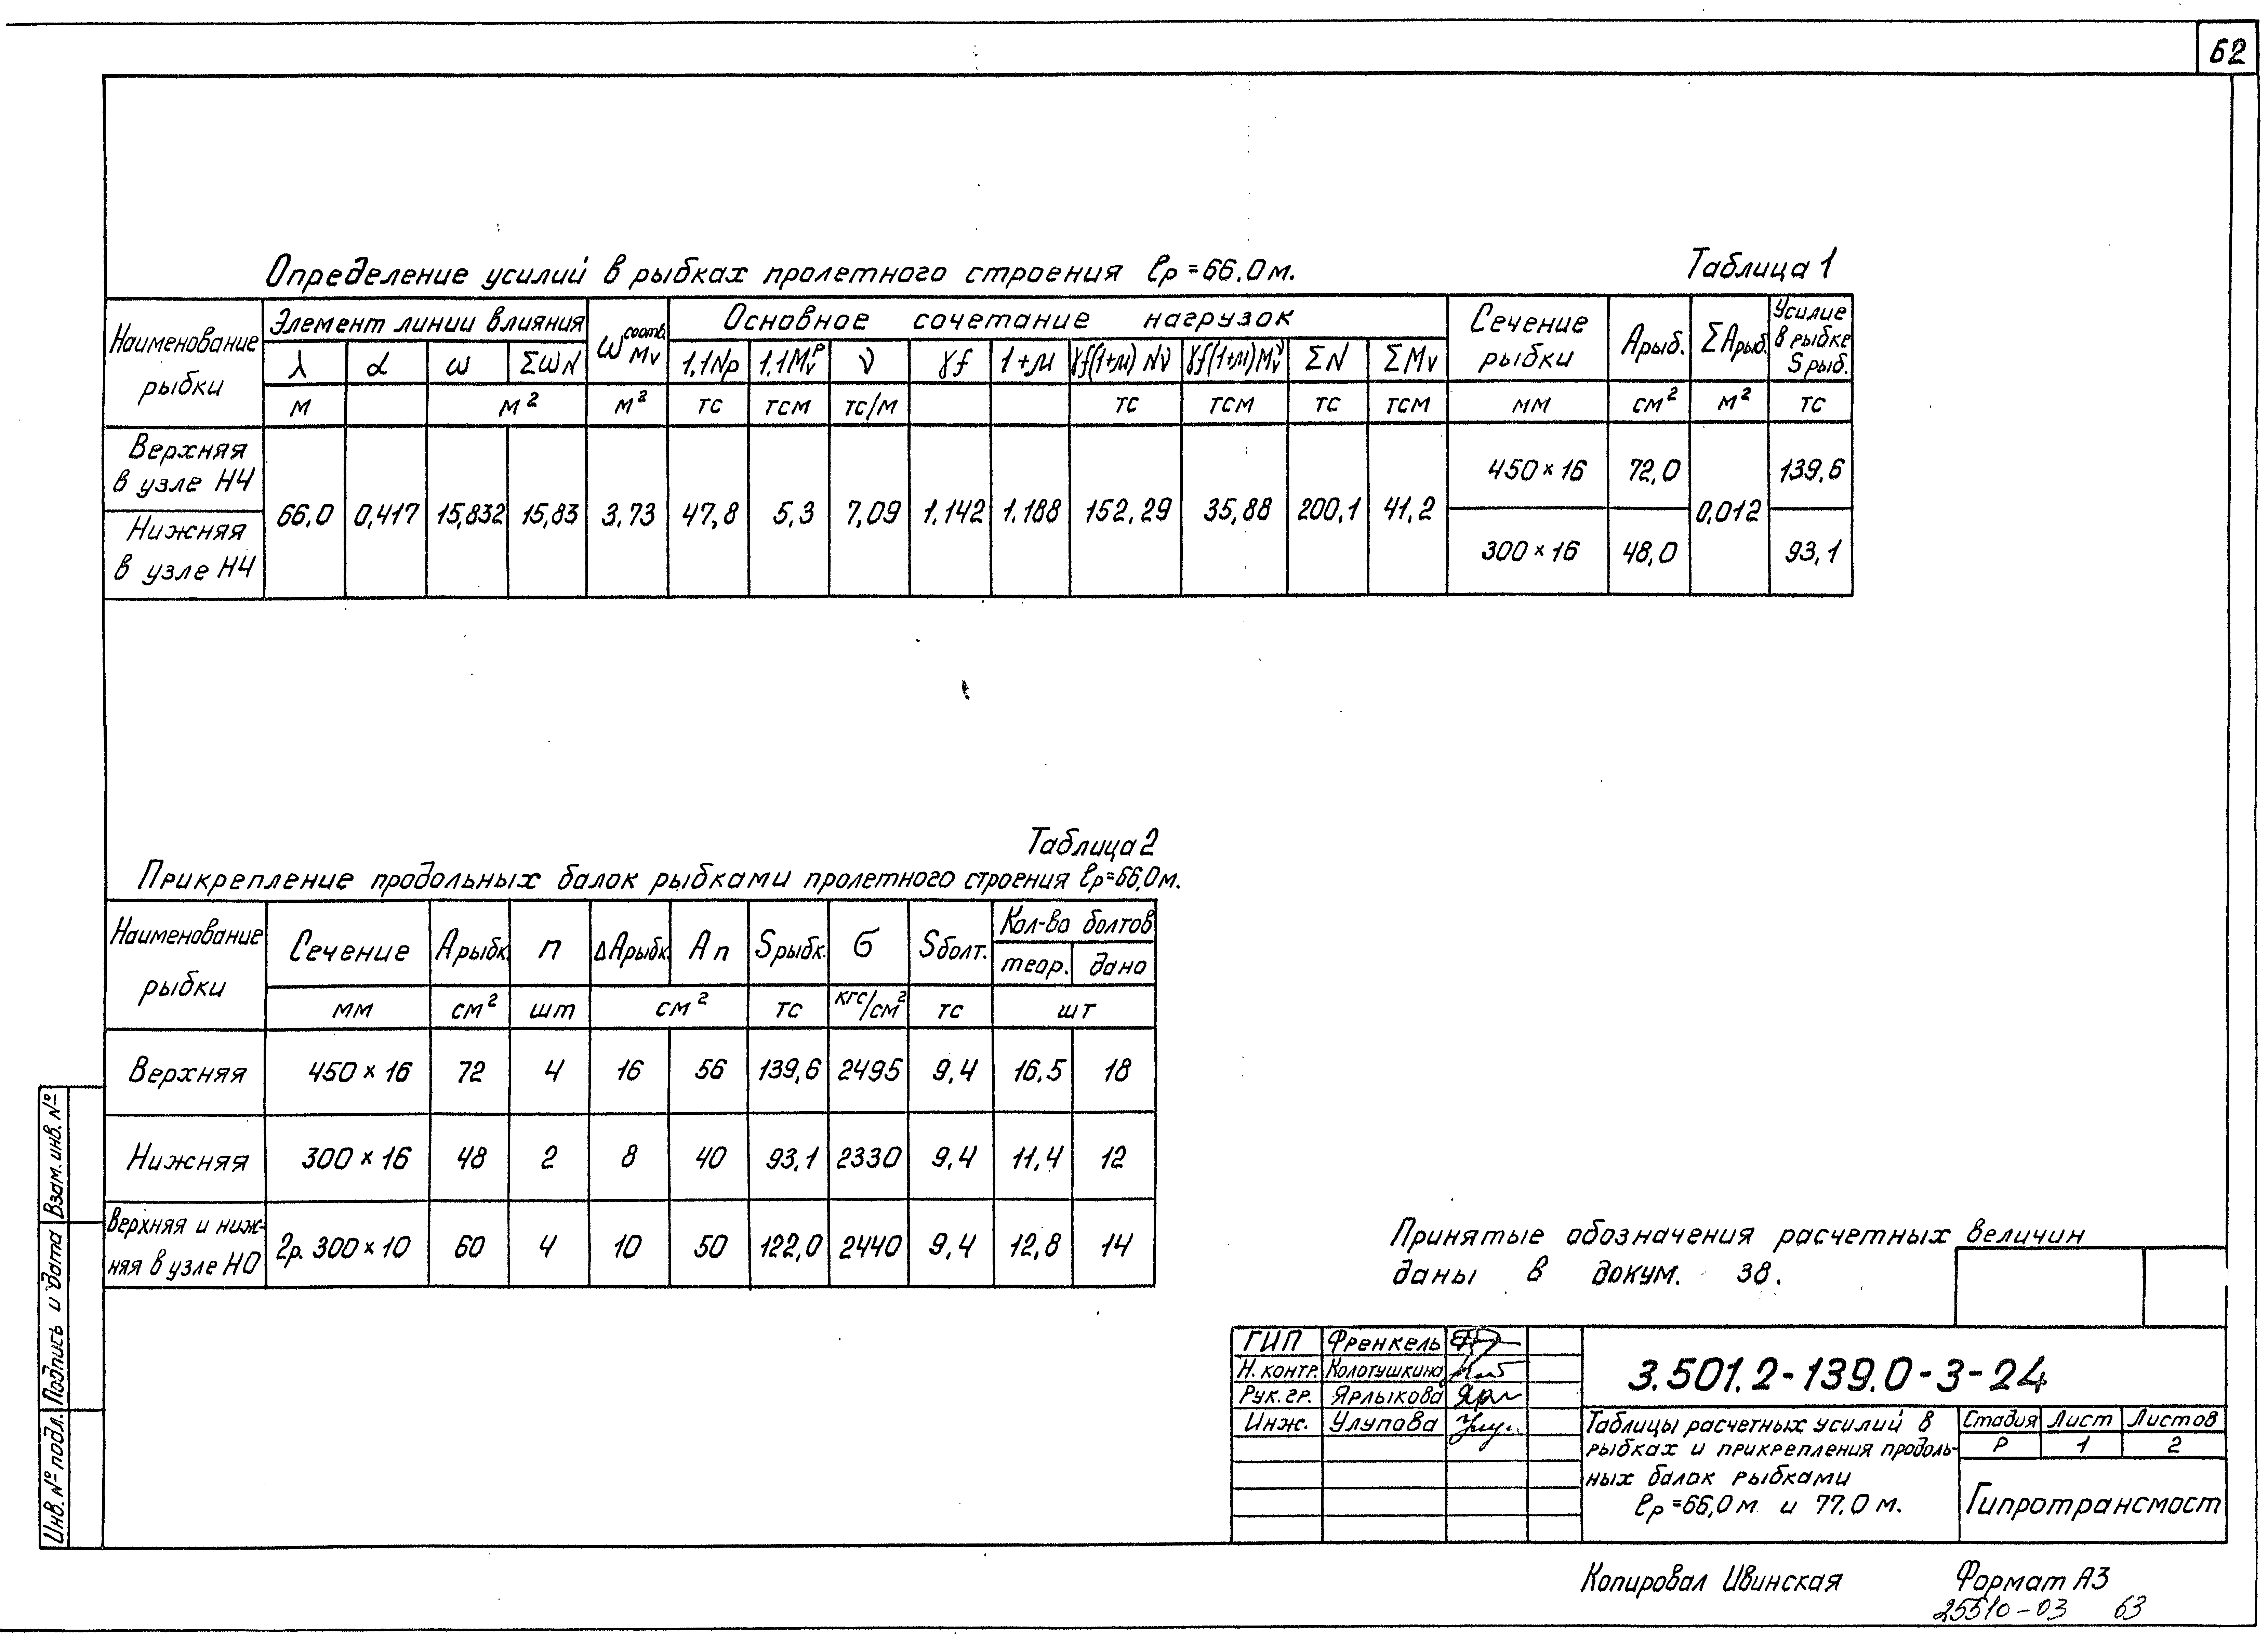 62
Определение усилий в рыбках пролетного строения ℓр=66.0м.
Таблица 1
Наименование рыбки
Элемент линии влияния
ω соотв. Mv
Основное сочетание нагрузок
Сечение рыбки
Aрыб.
ΣAрыб.
Усилие в рыбке Sрыб.
λ α ω ΣωN 1,1Np 1,1Mvᵖ ν γf 1+μ γf(1+μ)Nν γf(1+μ)Mvᵛ ΣN ΣMv
м м² м² тс тсм тс/м тс тсм тс тсм мм см² м² тс
Верхняя в узле Н4
Нижняя в узле Н4
66,0 0,417 15,832 15,83 3,73 47,8 5,3 7,09 1,142 1.188 152,29 35,88 200,1 41,2
450×16 72,0 0,012 139,6
300×16 48,0 93,1
Таблица 2
Прикрепление продольных балок рыбками пролетного строения ℓр=66,0м.
Наименование рыбки
Сечение Aрыбк. п ΔAрыбк. Aп Sрыбк. σ Sболт. Кол-во болтов
теор. дано
мм см² шт см² тс кгс/см² тс шт
Верхняя 450×16 72 4 16 56 139,6 2495 9,4 16,5 18
Нижняя 300×16 48 2 8 40 93,1 2330 9,4 11,4 12
Верхняя и ниж-
няя в узле Н0 2р. 300×10 60 4 10 50 122,0 2440 9,4 12,8 14
Принятые обозначения расчетных величин
даны в докум. 38.
Взам. инв. №
Подпись и дата
Инв. № подл.
ГИП Френкель
Н. контр. Колотушкина
Рук. гр. Ярлыкова
Инж. Улупова
3.501.2-139.0-3-24
Таблицы расчетных усилий в
рыбках и прикрепления продоль-
ных балок рыбками
ℓр=66,0м и 77.0 м.
Стадия Лист Листов
Р 1 2
Гипротрансмост
Копировал Ивинская
Формат А3
25510-03 63